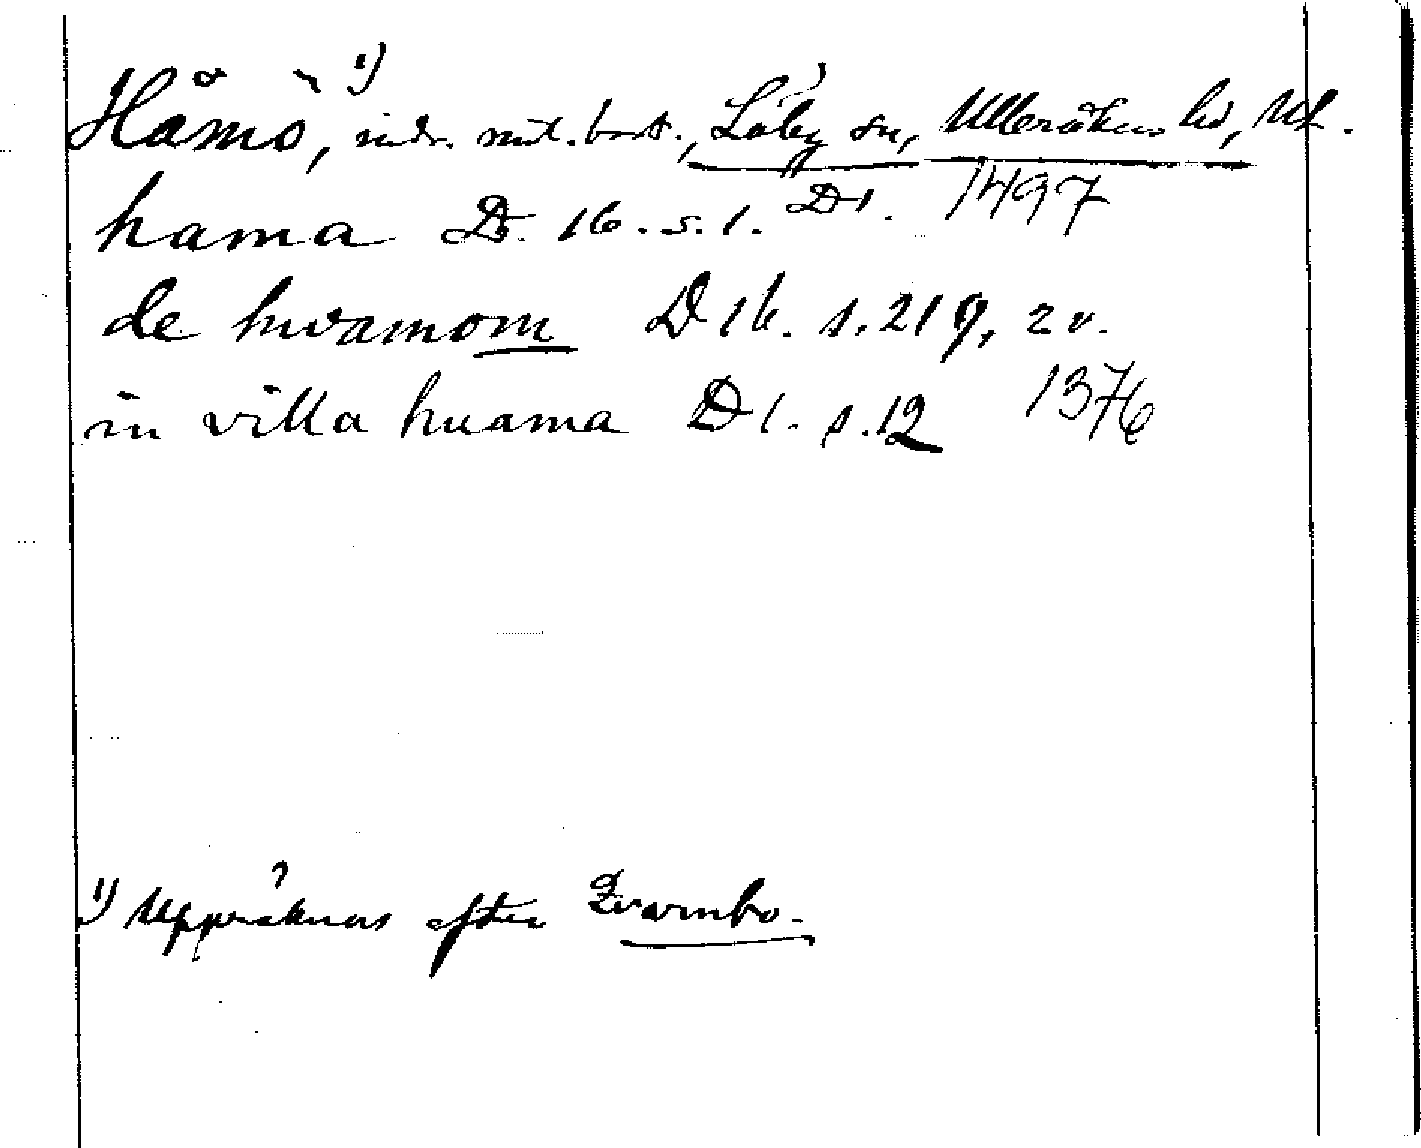 Håmö, ¹) Läby sn, Ulleråkers hd, Upl.
hama D. 16. s. 1. D 1. 1497
de hwamom D 16. s. 219, 2 v.
in villa huama D 1. s. 12 1376
¹) Uppräknas efter Kvarnbo.